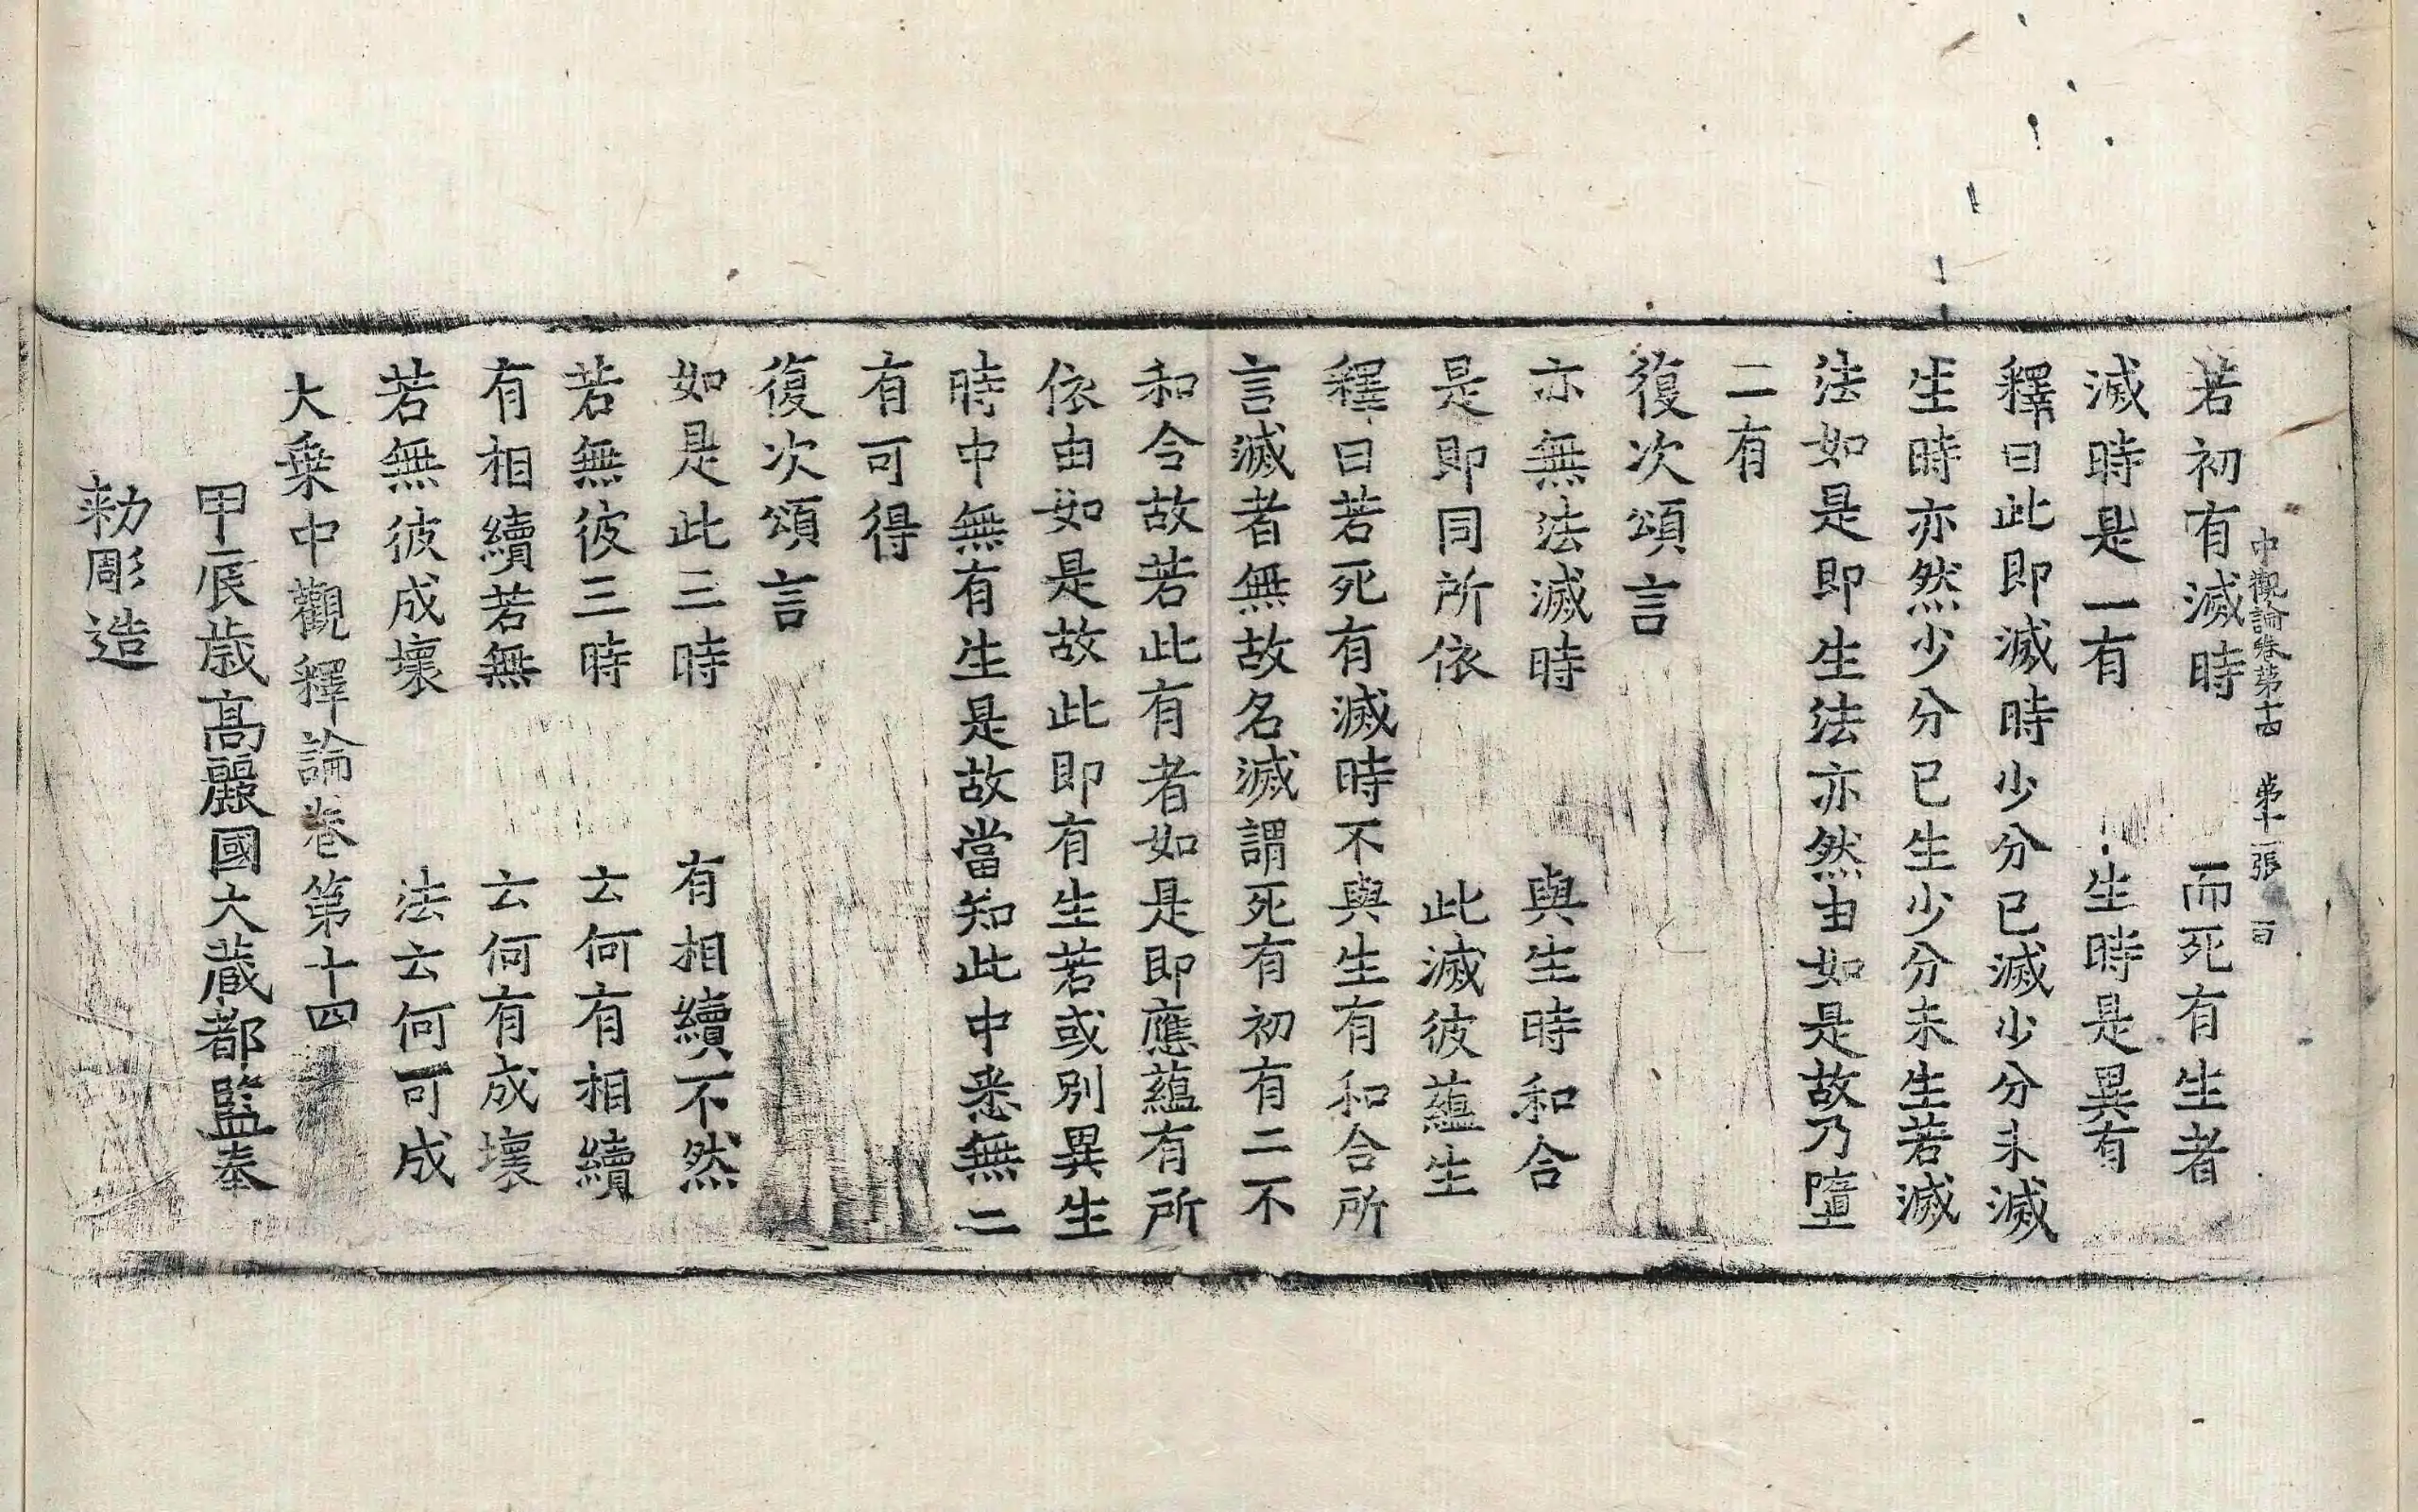 中觀論卷第十四 第十一張 言
若初有滅時 而死有生者
滅時是一有 生時是異有
釋曰此即滅時少分已滅少分未滅
生時亦然少分已生少分未生若滅
法如是即生法亦然由如是故乃墮
二有
復次頌言
亦無法滅時 與生時和合
是即同所依 此滅彼蘊生
釋曰若死有滅時不與生有和合所
言滅者無故名滅謂死有初有二不
和合故若此有者如是即應蘊有所
依由如是故此即有生若或別異生
時中無有生是故當知此中悉無二
有可得
復次頌言
如是此三時 有相續不然
若無彼三時 云何有相續
有相續若無 云何有成壞
若無彼成壞 法云何可成
大乗中觀釋論卷第十四
甲辰歳高麗國大蔵都監奉
勑彫造